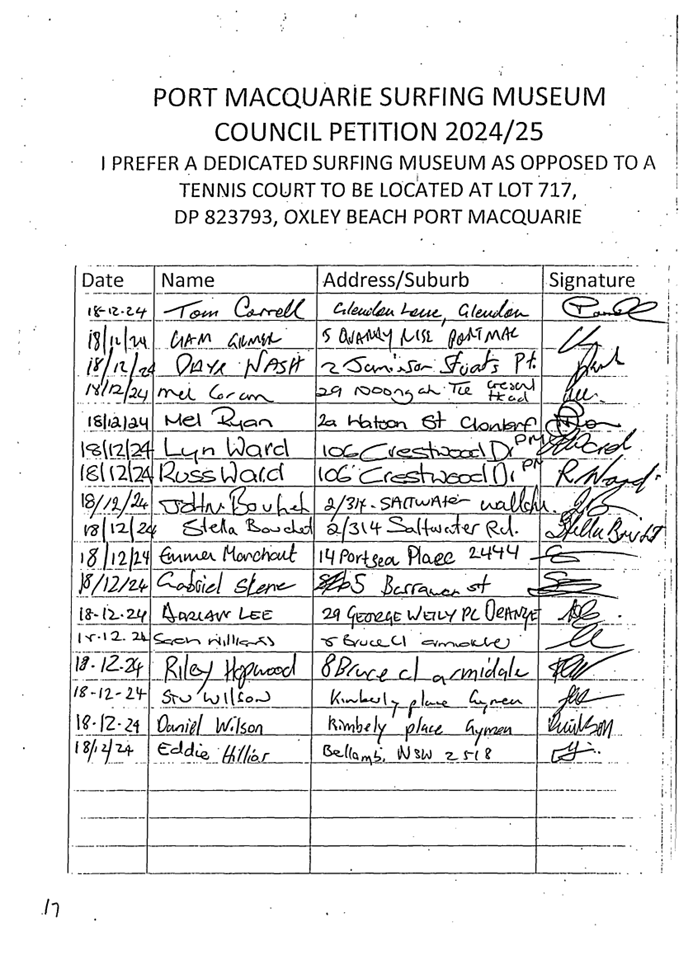 PORT MACQUARIE SURFING MUSEUM
COUNCIL PETITION 2024/25
I PREFER A DEDICATED SURFING MUSEUM AS OPPOSED TO A
TENNIS COURT TO BE LOCATED AT LOT 717,
DP 823793, OXLEY BEACH PORT MACQUARIE
Date Name Address/Suburb Signature
18-12-24 Tom Carrell Glendon Lane, Glendon
18/12/24 LIAM 5 PORT MAC
18/12/24 NASH 2 Pt.
18/12/24 Mel 29 Tce Cresent Head
18/12/24 Mel Ryan 2a Watson St Clontarf
18/12/24 Lyn Ward 106 Crestwood Dr PM
18/12/24 Russ Ward 106 Crestwood Dr PM R. Ward
18/12/24 John 2/314 SALTWATER
18/12/24 Stella 2/314 Saltwater Rd.
18/12/24 Emmer Marchant 14 Portsea Place 2444
18/12/24 Gabriel Stene 5 st
18-12-24 ADRIAN LEE 29 GEORGE WEILY PC ORANGE
18-12.24 Williams 8 Bruce Cl
18-12-24 Riley Hopwood 8 Bruce cl armidale
18-12-24 STU WILSON Kimberly place Gymea
18-12-24 Daniel Wilson Kimbely place Gymea
18/12/24 Eddie Hillier Bellambi NSW 2518
17